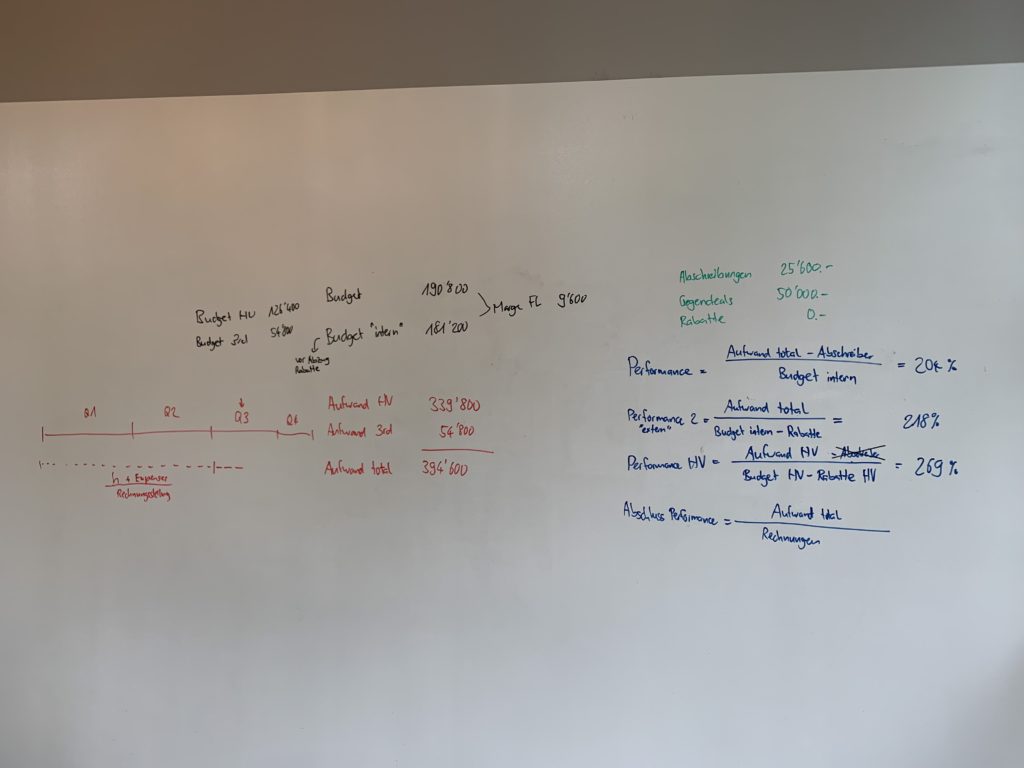 Budget HV 126'400
Budget 3rd 54'800
Budget 190'800
Budget "intern" 181'200
Marge FL 9'600
vor Abzug
Rabatte
Q1 Q2 Q3
h + Expenses
Rechnungsstellung
Aufwand HV 339'800
Aufwand 3rd 54'800
Aufwand total 394'600
Abschreibungen 25'600.-
Gegendeals 50'000.-
Rabatte 0.-
Performance = Aufwand total - Abschreiber
Budget intern
= 204 %
Performance 2 = Aufwand total
"extern"
Budget intern - Rabatte
= 218%
Performance HV = Aufwand HV
Budget HV - Rabatte HV
= 269 %
Abschluss Performance = Aufwand total
Rechnungen